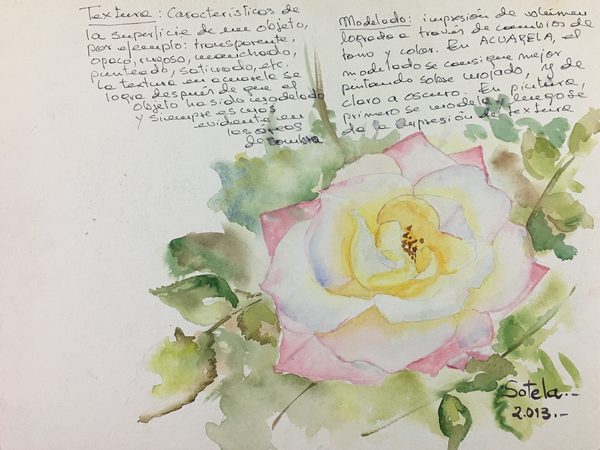 Textura: Características de
la superficie de un objeto,
por ejemplo: transparente,
opaco, rugoso, manchado,
punteado, satinado, etc.
La textura en acuarela se
logra después de que el
objeto ha sido modelado
y siempre es más
evidente en
las áreas
de sombra
Modelado: impresión de volúmen
logrado a través de cambios de
tono y color. En ACUARELA, el
modelado se consigue mejor
pintando sobre mojado, y de
claro a oscuro. En pintura,
primero se modela y luego se
da la expresión de textura
Sotela.-
2.013.-